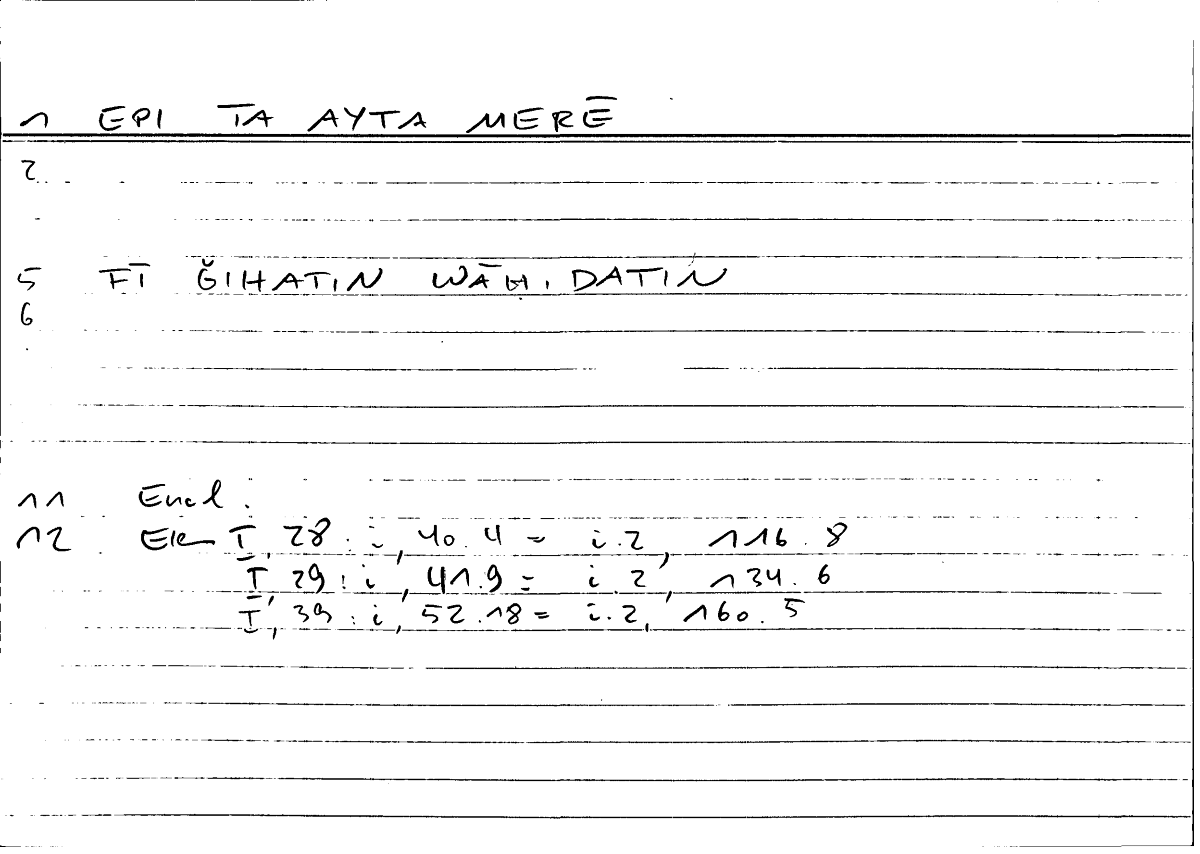 1 EPI TA AYTA MERĒ
2
5 FĪ ǦIHATIN WĀḤIDATIN
6
11 Eucl.
12 El I, 28 : i, 40.4 = i.2, 116.8
I, 29 : i, 41.9 = i.2, 134.6
I, 39 : i, 52.18 = i.2, 160.5